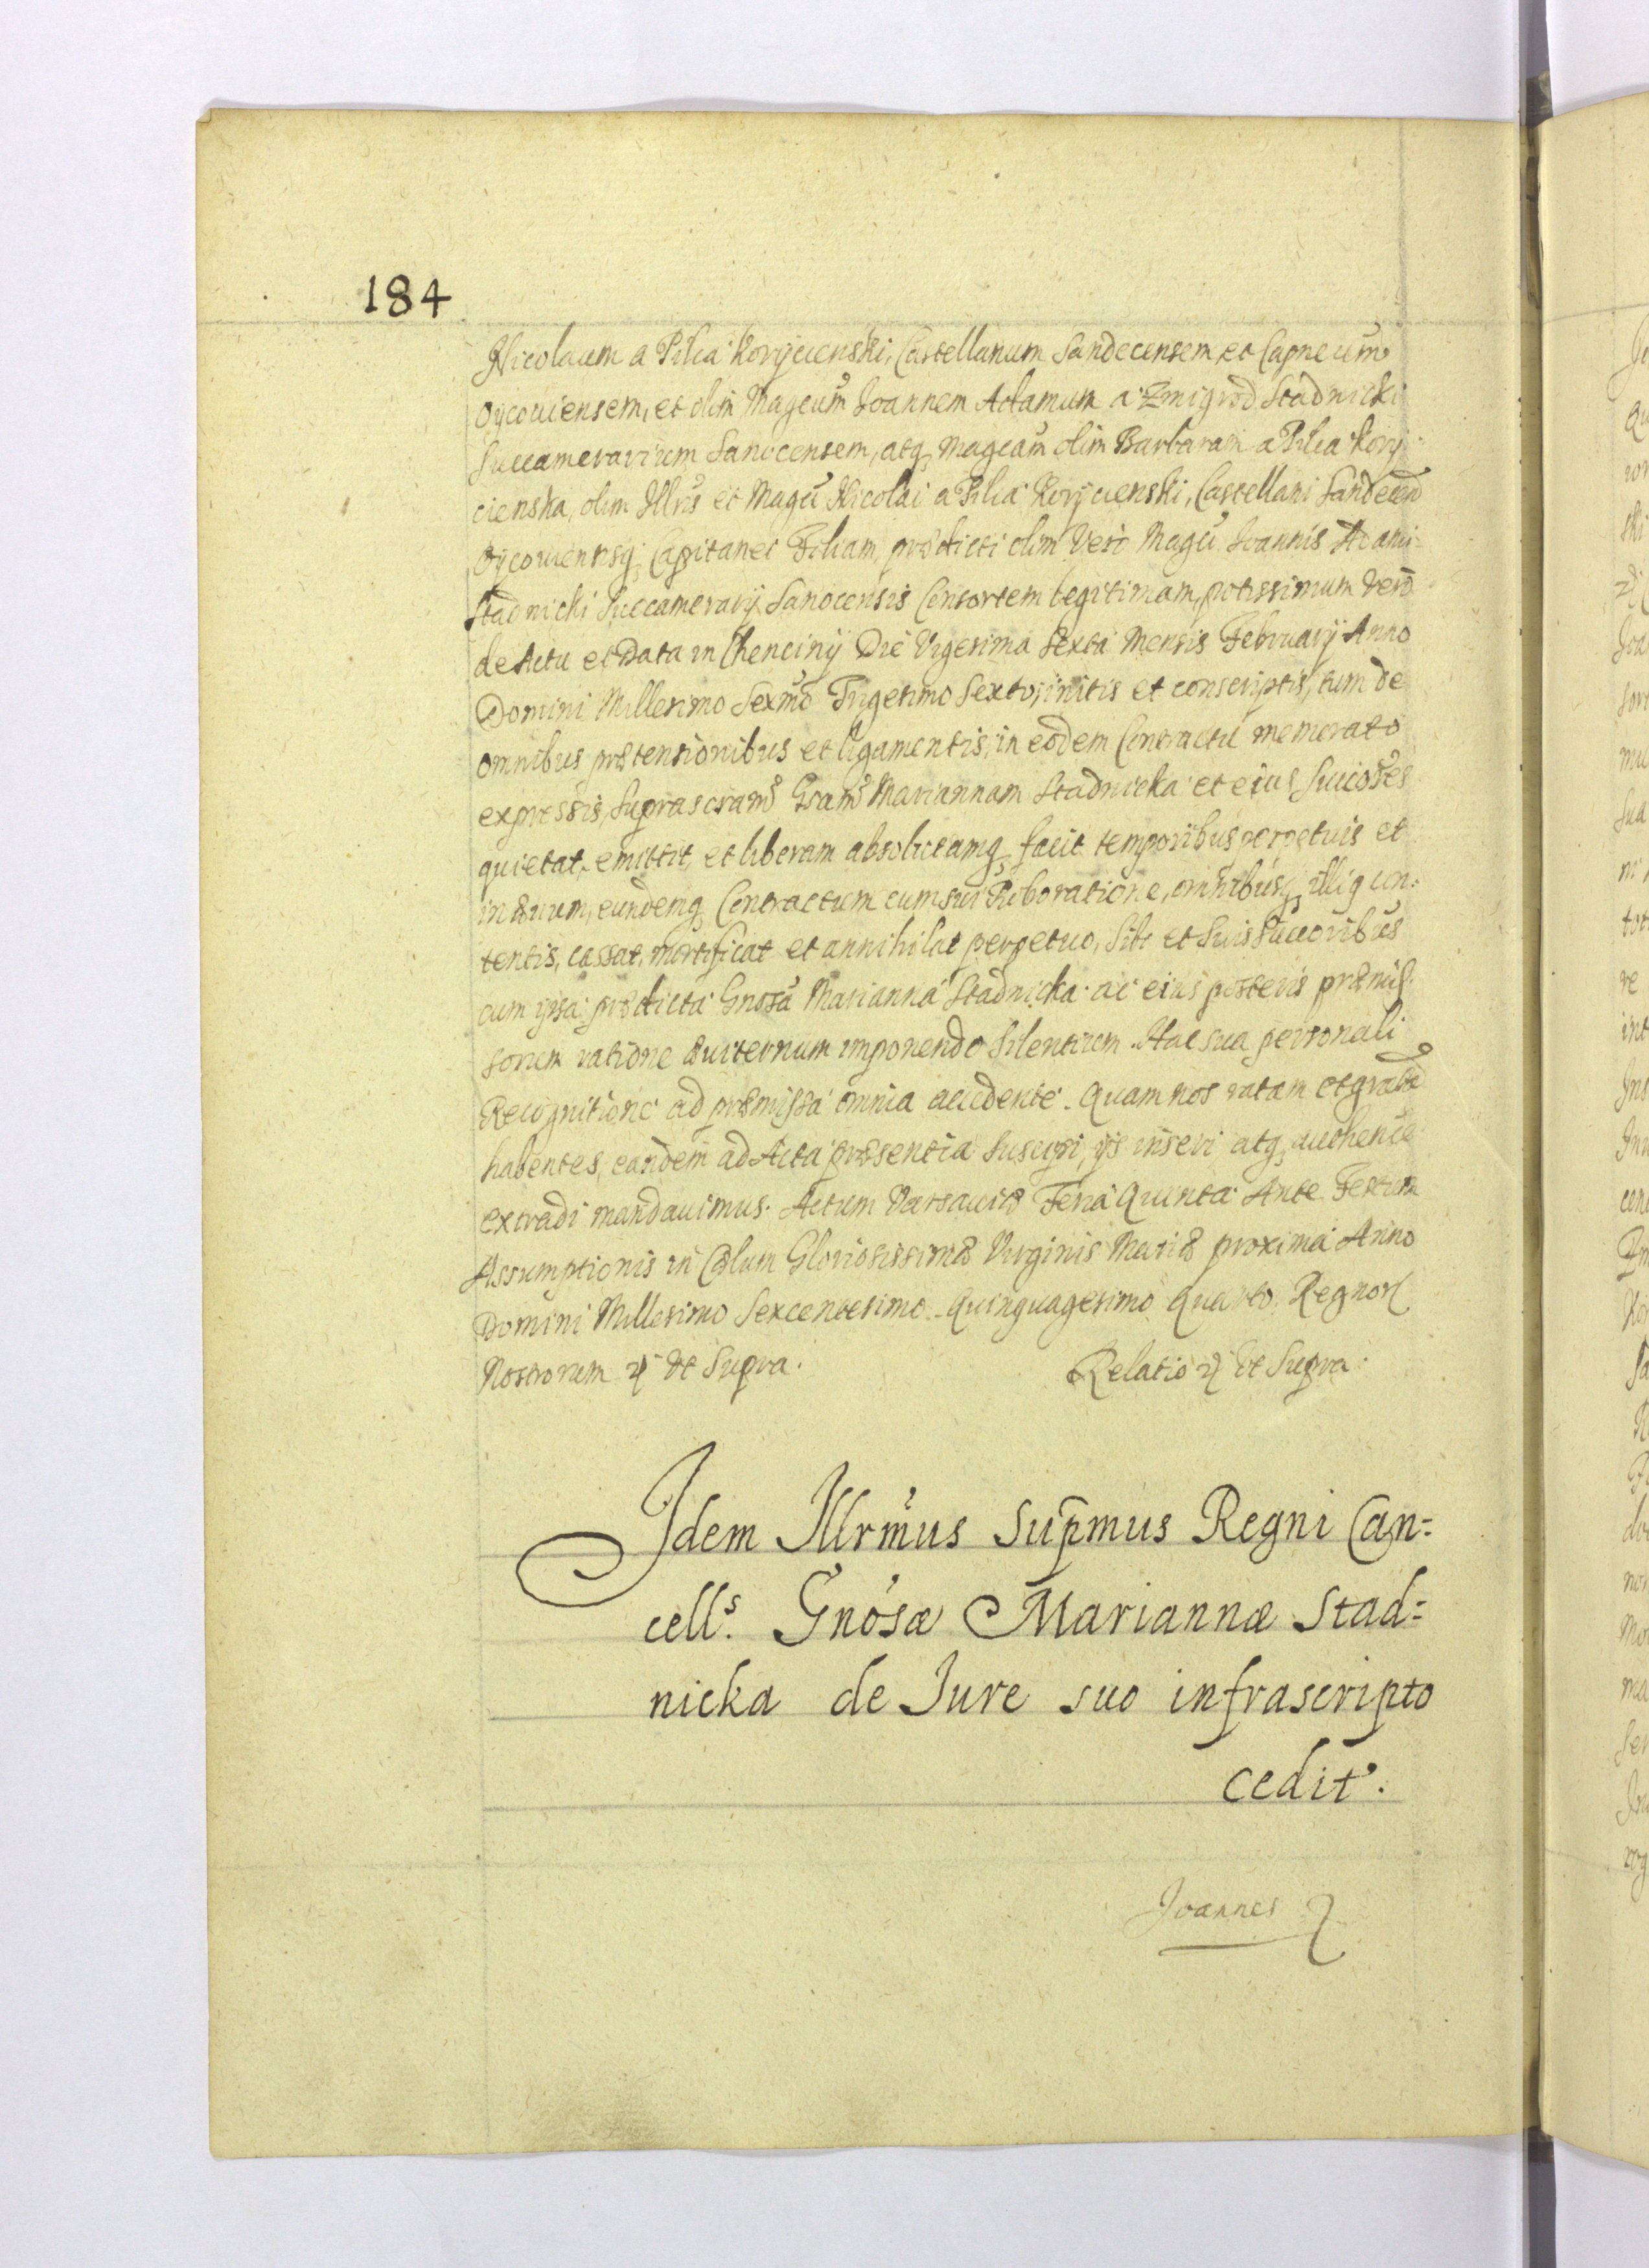 184
Nicolaum a Pilca Korÿcienski, Castellanum Sandecensem et Capneum
Oÿcouiensem, et olim Magcum Joannem Adamum a Zmigrod Stadnicki
Succamerarium Sanocensem, atq Magcam olim Barbaram a Pilca Korÿ-
cienska, olim Illris et Magci Nicolai a Pilca Korÿcienski, Castellani Sandecen
Oÿcouiensisq Capitanei Filiam, prædicti olim Vero Magci Joannis Adami
Stadnicki Succamerarÿ Sanocensis Consortem legitimam, potissimum Vero
de Actu et Data in Chencinÿ Die Vigesima Sexta Mensis Februarÿ Anno
Domini Millesimo Sexmo Trigesimo Sexto, initis et conscriptis, tum de
omnibus prætensionibus et ligamentis, in eodem Contractu memorato
expressis, Suprascram Gsam Mariannam Stadnicka et eius Succores
quietat, emittit, et liberam absolutamq facit temporibus perpetuis et
in æuum, eundemq Contractum cum sui Roboratione, omnibusq illiq con-
tentis, cassat, mortificat et annihilat perpetuo, Sibi et Suis Succoribus
cum ipsa prædicta Gnosa Marianna Stadnicka ac eius posteris præmis-
sorum ratione æuiternum imponendo Silentium. Hac sua personali
Recognitione ad præmissa omnia accedente. Quam nos ratam et gratā
habentes, eandem ad Acta præsentia Suscipi, ÿs inseri atq authence
extradi mandauimus. Actum Varsauiæ Feria Quinta Ante Festum
Assumptionis in Cælum Gloriosissimæ Virginis Mariæ proxima Anno
Domini Millesimo Sexcentesimo Quinquagesimo Quarto. Regnor
Nostrorum Ut Supra. Relatio Ut Supra.
Idem Illrmus Supmus Regni Can=
cells. Gnosæ Mariannæ Stad=
nicka de Jure suo infrascripto
cedit.
Joannes